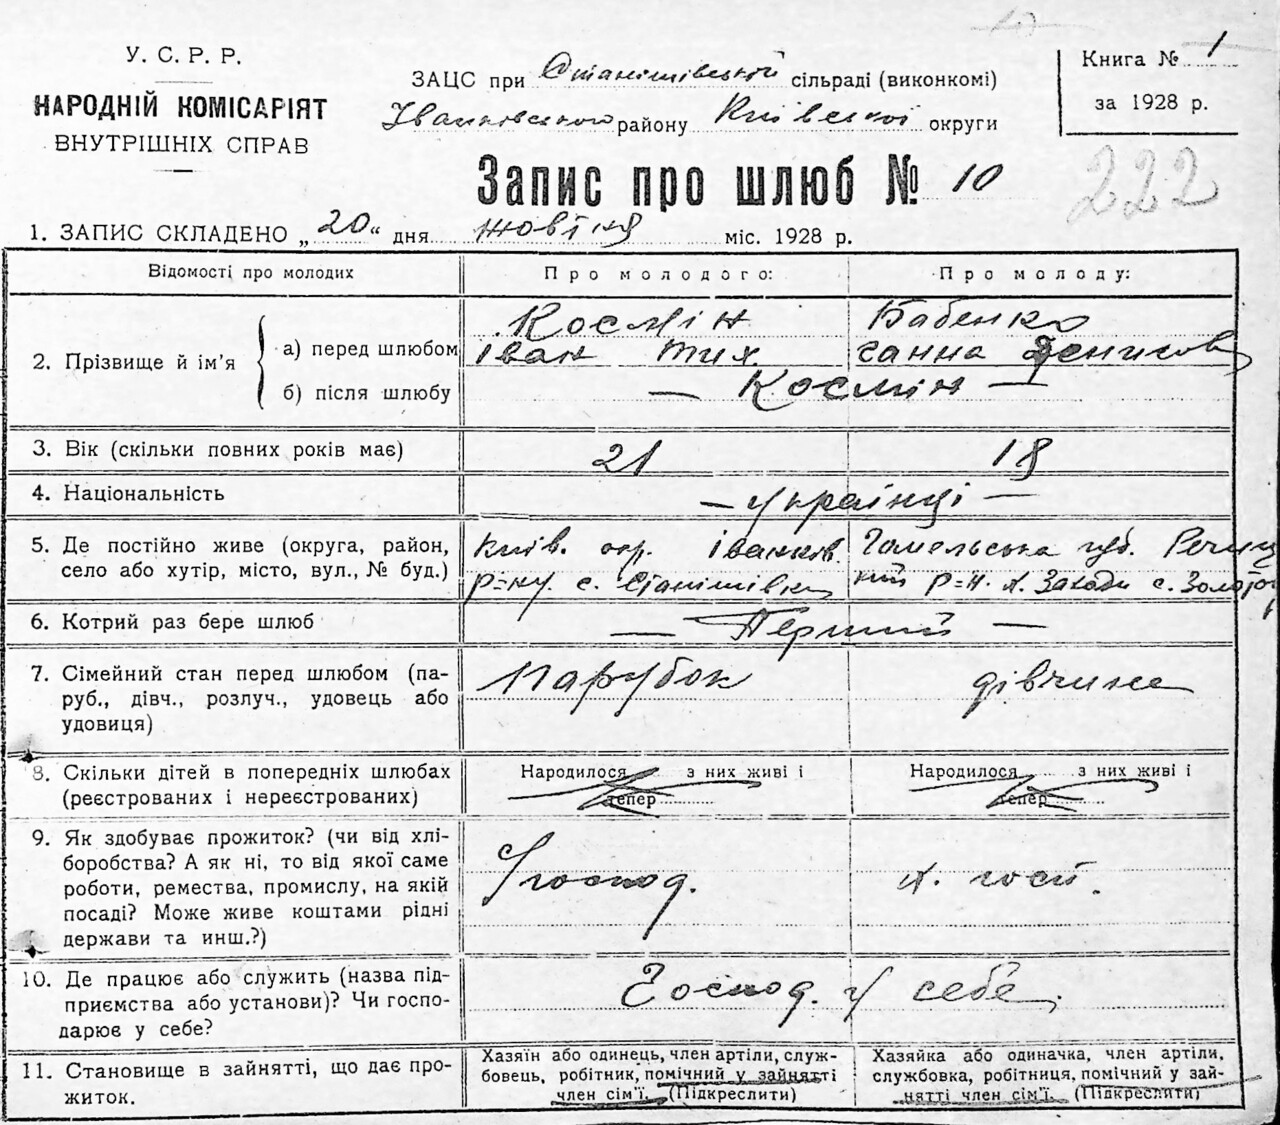 У. С. Р. Р.
НАРОДНІЙ КОМІСАРІЯТ
ВНУТРІШНІХ СПРАВ
ЗАЦС при Станішівській сільраді (виконкомі)
Іванковського району Київської округи
Книга № 1
за 1928 р.
Запис про шлюб № 10
222
1. ЗАПИС СКЛАДЕНО „20" дня жовтня міс. 1928 р.
Відомості про молодих Про молодого: Про молоду:
2. Прізвище й ім'я
а) перед шлюбом
Космін
Іван Тих
Бабенко
Ганна Денисов
б) після шлюбу
— Космін —
3. Вік (скільки повних років має) 21 18
4. Національність — українці —
5. Де постійно живе (округа, район,
село або хутір, місто, вул., № буд.)
Київ. окр. Іванків.
р=ну. с. Станішівка
Гомельська губ. Речиц
кий р=н. х. Заходи с.
6. Котрий раз бере шлюб — Перший —
7. Сімейний стан перед шлюбом (па-
руб., дівч., розлуч., удовець або
удовиця)
Парубок
дівчина
8. Скільки дітей в попередніх шлюбах
(реєстрованих і нереєстрованих)
Народилося з них живі і
тепер
Народилося з них живі і
тепер
9. Як здобуває прожиток? (чи від хлі-
боробства? А як ні, то від якої саме
роботи, ремества, промислу, на якій
посаді? Може живе коштами рідні
держави та инш.?)
господ.
х. госп.
10. Де працює або служить (назва під-
приємства або установи)? Чи госпо-
дарює у себе?
Господ. у себе.
11. Становище в зайнятті, що дає про-
житок.
Хазяїн або одинець, член артіли, служ-
бовець, робітник, помічний у зайнятті
член сім'ї. (Підкреслити)
Хазяйка або одиначка, член артіли,
службовка, робітниця, помічний у зай-
нятті член сім'ї. (Підкреслити)